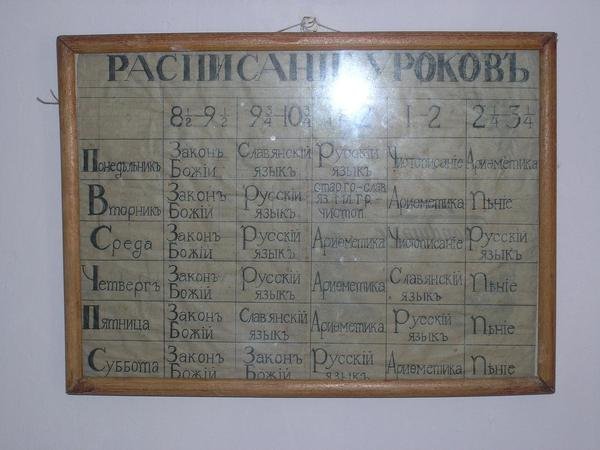 РАСПИСАНІЕ УРОКОВЪ
8½-9½ 9¾-10¾ 1-2 2¼-3¼
Понедѣльникъ Законъ Божій Славянскій языкъ Русскій языкъ Чистописаніе Ариѳметика
Вторникъ Законъ Божій Русскій языкъ стар. гр.-слав. яз. мл. гр. чистоп. Ариѳметика Пѣніе
Среда Законъ Божій Русскій языкъ Ариѳметика Чистописаніе Русскій языкъ
Четвергъ Законъ Божій Русскій языкъ Ариѳметика Славянскій языкъ Пѣніе
Пятница Законъ Божій Славянскій языкъ Ариѳметика Русскій языкъ Пѣніе
Суббота Законъ Божій Законъ Божій Русскій языкъ Ариѳметика Пѣніе